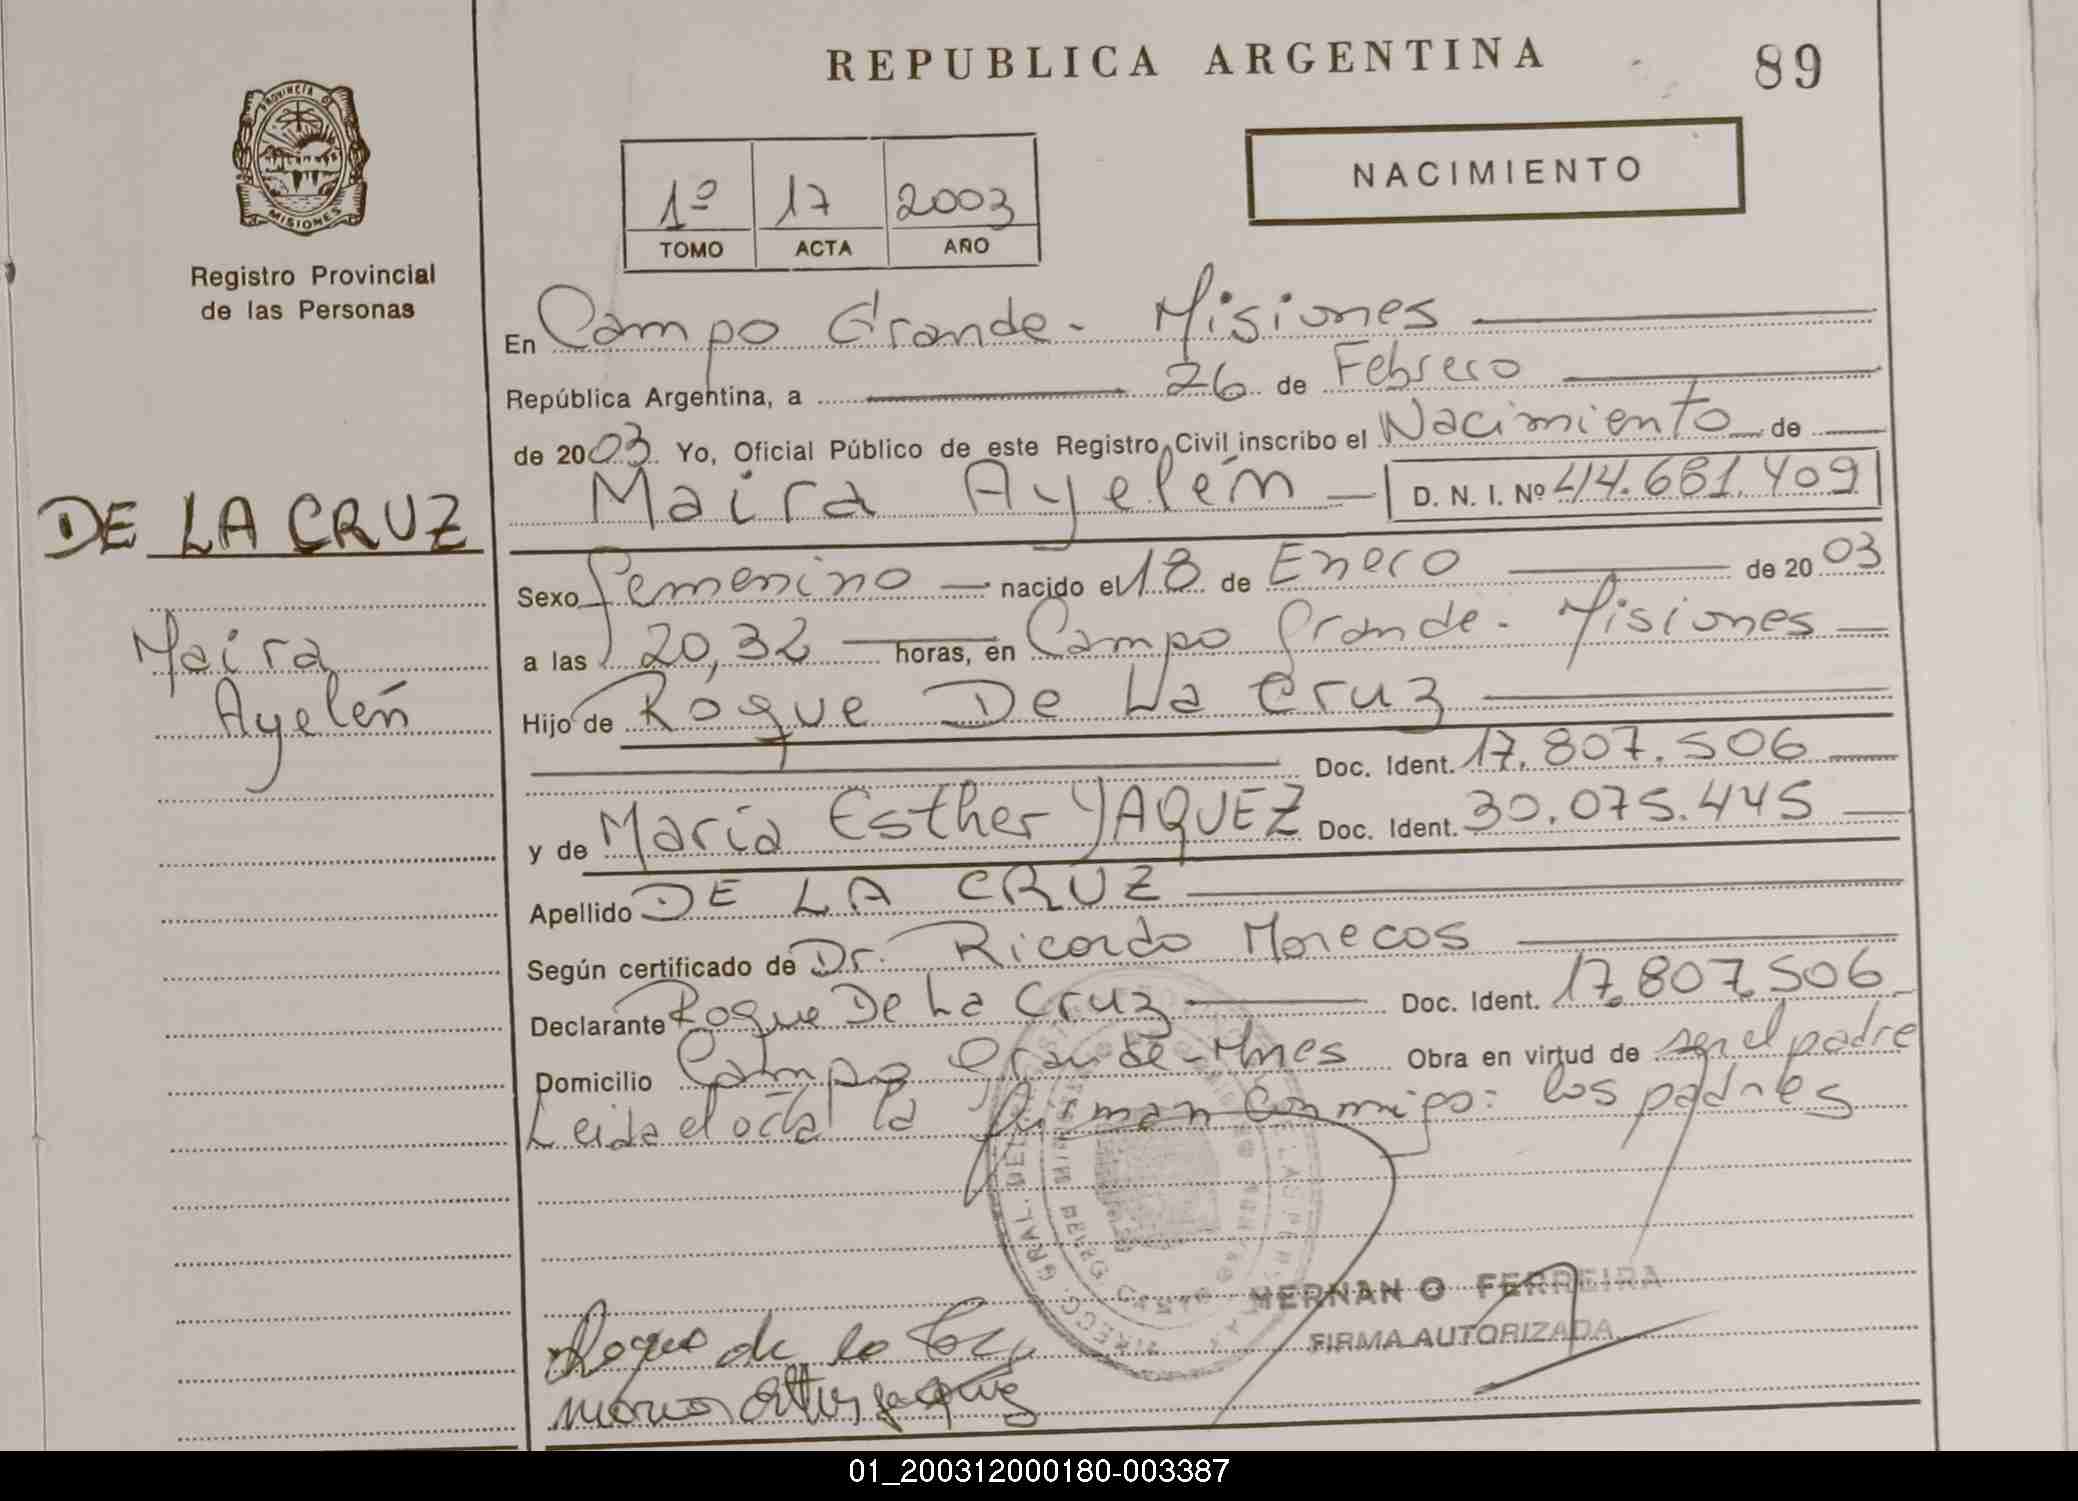 REPUBLICA ARGENTINA
89
PROVINCIA DE
MISIONES
Registro Provincial
de las Personas
1º 17 2003
TOMO ACTA AÑO
NACIMIENTO
En Campo Grande - Misiones
República Argentina, a 26 de Febrero
de 2003 Yo, Oficial Público de este Registro Civil inscribo el Nacimiento de
Maira Ayelén D. N. I. Nº 44.681.409
DE LA CRUZ
Maira
Ayelén
Sexo femenino nacido el 18 de Enero de 2003
a las 20,32 horas, en Campo Grande - Misiones
Hijo de Roque De La Cruz
Doc. Ident. 17.807.506
y de María Esther YAQUEZ Doc. Ident. 30.075.445
Apellido DE LA CRUZ
Según certificado de Dr. Ricardo Marecos
Declarante Roque De La Cruz Doc. Ident. 17.807.506
Domicilio Campo Grande - Mnes Obra en virtud de ser el padre
Leida el acta la firman conmigo: los padres
HERNAN O FERREIRA
FIRMA AUTORIZADA
Roque de la Cruz
01_200312000180-003387